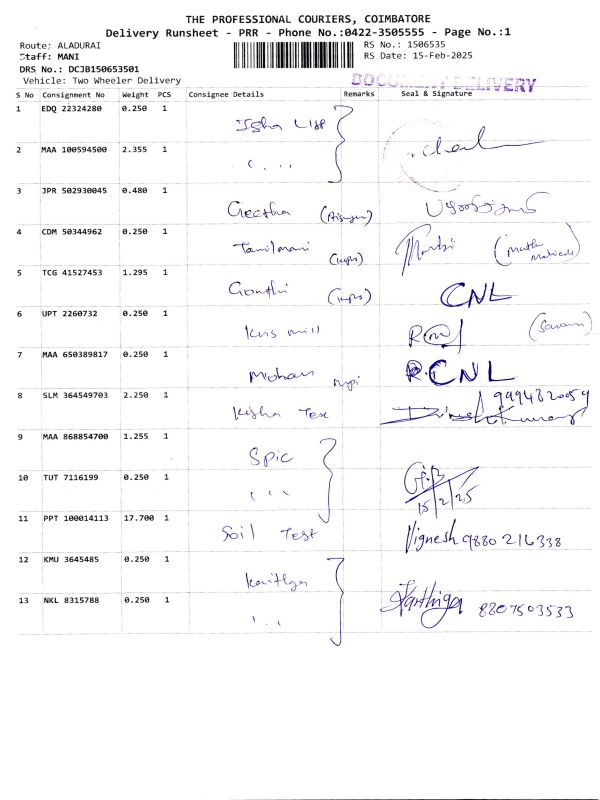 THE PROFESSIONAL COURIERS, COIMBATORE
Delivery Runsheet - PRR - Phone No.:0422-3505555 - Page No.:1
Route: ALADURAI
RS No.: 1506535
Staff: MANI
RS Date: 15-Feb-2025
DRS No.: DCJB150653501
Vehicle: Two Wheeler Delivery
DOCUMENT DELIVERY
S No Consignment No Weight PCS Consignee Details Remarks Seal & Signature
1 EDQ 22324280 0.250 1
Isha
2 MAA 100594500 2.355 1
3 JPR 502930045 0.480 1
Geetha
4 CDM 50344962 0.250 1
Tamilmani
5 TCG 41527453 1.295 1
CNL
6 UPT 2260732 0.250 1
mill (Saran)
7 MAA 650389817 0.250 1
Mohan CNL
8 SLM 364549703 2.250 1
9994820059
Kisha Tex
9 MAA 868854700 1.255 1
Spic
10 TUT 7116199 0.250 1
15/2/25
11 PPT 100014113 17.700 1
Soil Test Vignesh 9880216338
12 KMU 3645485 0.250 1
13 NKL 8315788 0.250 1
Karthiga 8807503533